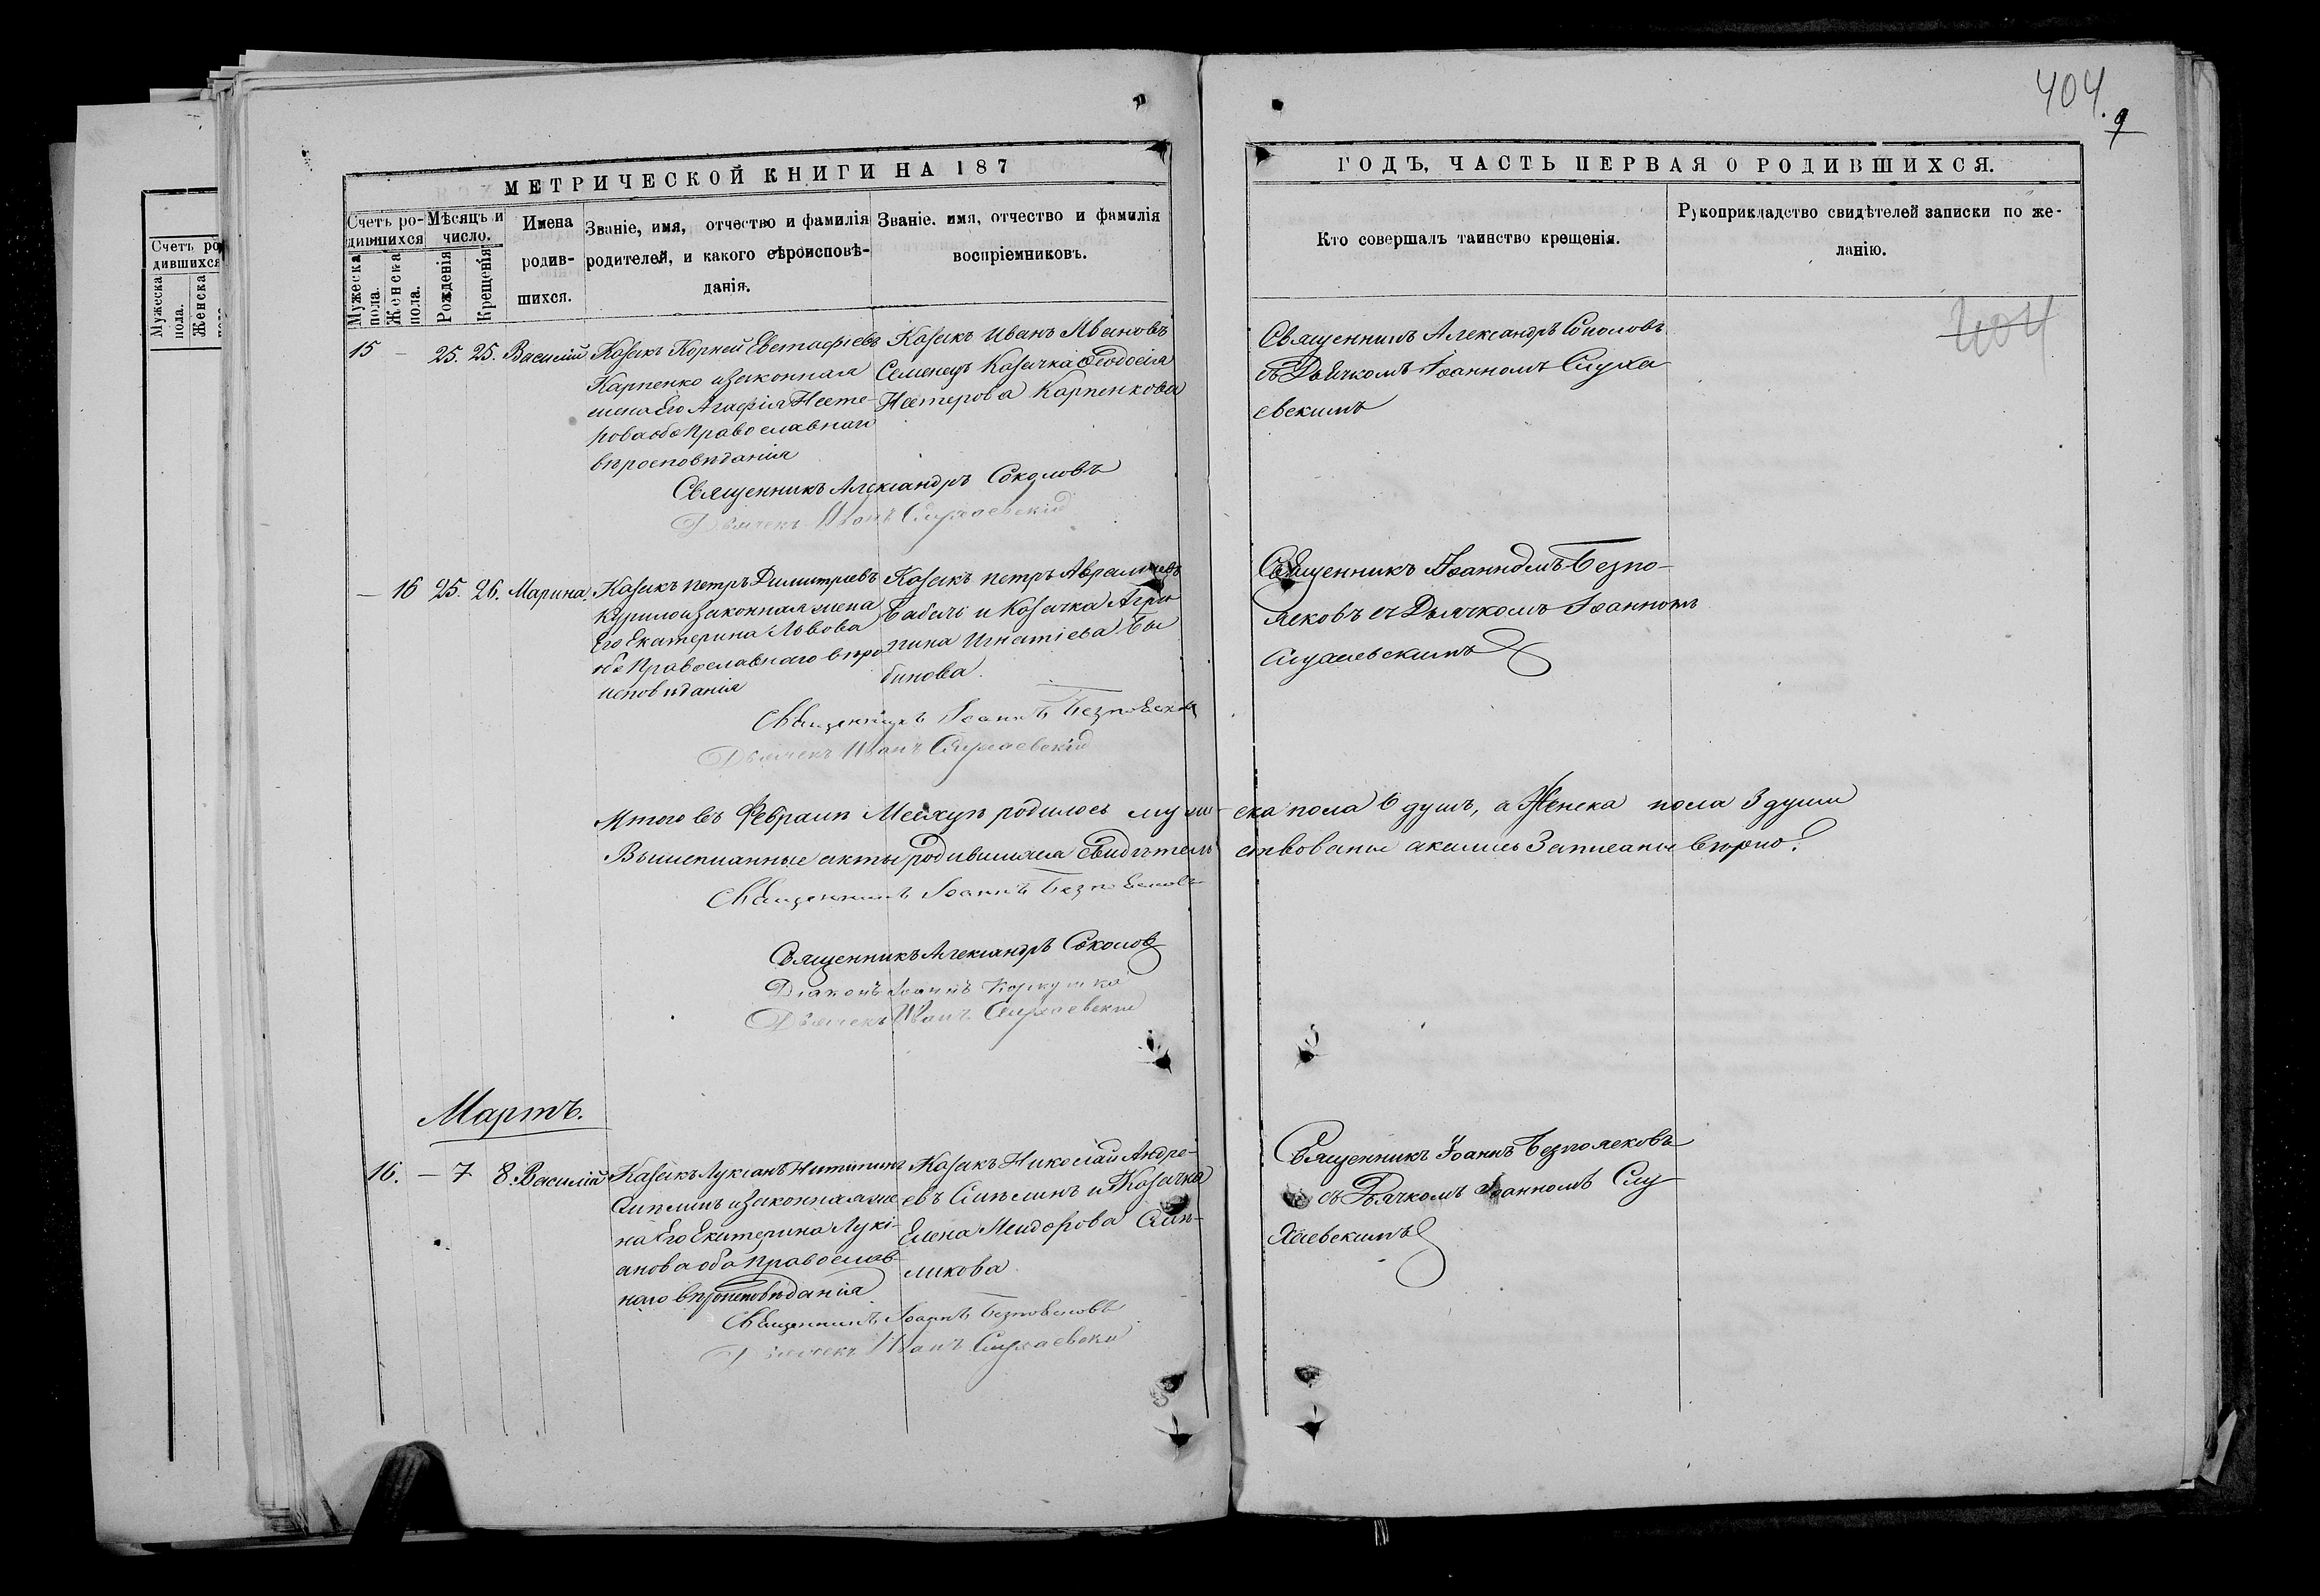 404.
9
МЕТРИЧЕСКОЙ КНИГИ НА 187
ГОДЪ, ЧАСТЬ ПЕРВАЯ О РОДИВШИХСЯ.
Счетъ ро-
дившихся
Мужеска пола.
Женска пола.
Мѣсяцъ и число.
Рожденія
Крещенія
Имена родив-шихся.
Званіе, имя, отчество и фамилія
родителей, и какого вѣроисповѣ-
данія.
Званіе, имя, отчество и фамилія
воспріемниковъ.
Кто совершалъ таинство крещенія.
Рукоприкладство свидѣтелей записки по же-
ланію.
Счетъ ро
дившихся
Мужеска пола.
Женска
404
15 – 25. 25. Василій
Козакъ Корней Евстафіевъ
Карпенко и законная
жена Его Агафія Несте-
рова оба Православнаго
вѣроисповѣданія
Козакъ Иванъ Ивановъ
Семенецъ Козачка Феодосія
Нестерова Карпенкова
Священникъ Александръ Соколовъ
съ Дьячкомъ Іоанномъ Слуха
евскимъ
Священникъ Александръ Соколовъ
Дьячекъ Иванъ Слухаевскій
– 16 25. 26. Марина.
Козакъ Петръ Димитріевъ
Курило и законная жена
Его Екатерина Львова
оба Православнаго вѣро
исповѣданія
Козакъ Петръ
и Козачка Агри
пина Игнатіева Ба
бичова.
Священникъ Іоанномъ Безпо-
ясковъ съ Дьячкомъ Іоанномъ
Слухаевскимъ
Священникъ Іоаннъ Безпоясковъ
Дьячекъ Иванъ Слухаевскій
Итого въ Февралѣ Месяцѣ родилось муже-ска пола 6 душъ, а Женска пола 3 души
акты родившихся свидѣтель ствованы Записаны вѣрно.
Священникъ Іоаннъ Безпоясковъ
Священникъ Александръ Соколовъ
Діаконъ Іоаннъ
Дьячекъ Иванъ Слухаевскій
Мартъ.
16. – 7 8. Василій
Козакъ Лукіанъ
и законная же
на Его Екатерина Лукі-
анова оба Православ-
наго вѣроисповѣданія
Козакъ Николай Андре-
евъ и Козачка
Елена
ликова
Священникъ Іоаннъ Безпоясковъ
съ Дьячкомъ Іоанномъ Слу
хаевскимъ
Священникъ Іоаннъ Безпоясковъ
Дьячекъ Иванъ Слухаевскій